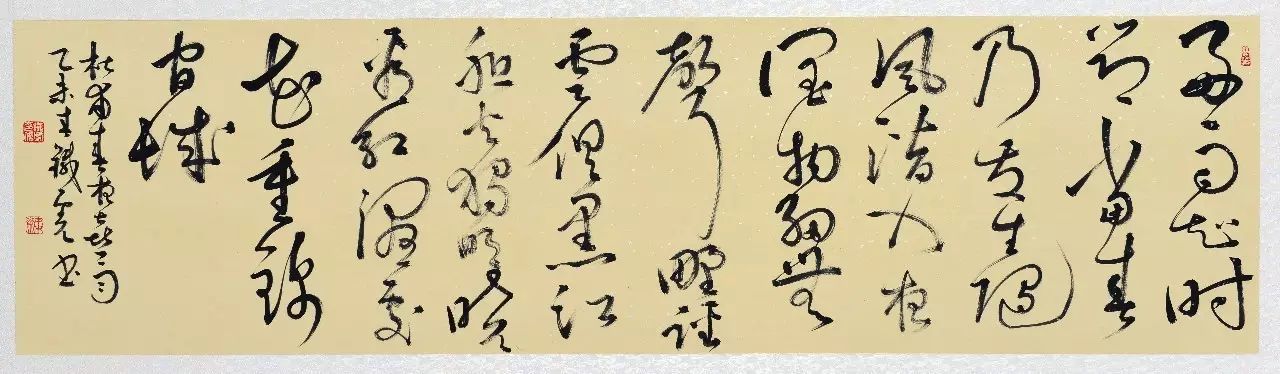 好雨知时
节当春
乃发生随
风潜入夜
润物细无
声野径
云俱黑江
船火独明晓
看红湿处
花重锦
官城
杜甫春夜喜雨
乙未书